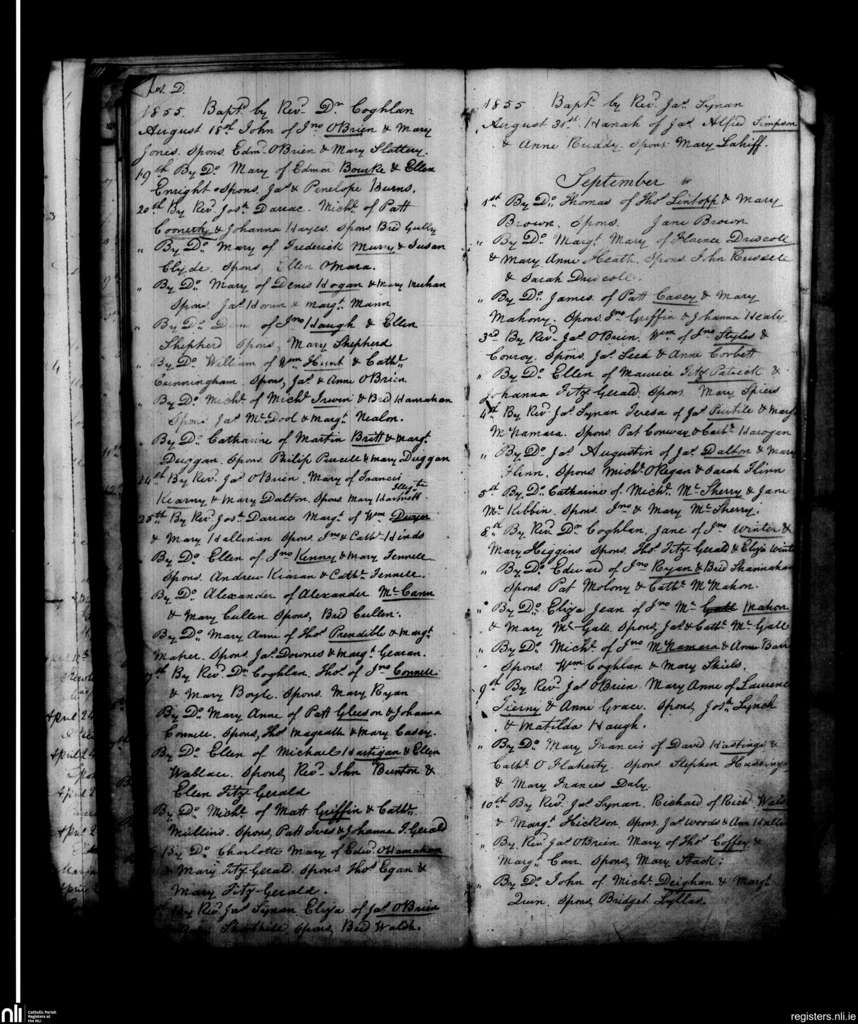 1855 Bapt. by Revd. Dr. Coghlan
August 18th John of Jno. O'Brien & Mary
Jones. Spons. Edmd. O'Brien & Mary Slattery.
19th By Do. Mary of Edmon Bourke & Ellen
Enright Spons. Jas. & Penelope Burns.
20th By Revd. Josh. Darrac. Michl. of Patt
& Johanna Hayes. Spons. Brd Gully
" By Do. Mary of Frederick & Susan
Clyde. Spons, Ellen O'Mara.
" By Do. Mary of Denis Hogan & Mary
Spons Jas. & Margt. Mann
" By Do. of Jno. Haugh & Ellen
Shepherd Spons, Mary Shepherd
" By Do. William of Wm Hunt & Cathe.
Cunningham Spons, Jas. & Anne O'Brien
By Do. Michl. of Michl. Irwin & Brd Hanrahan
Spons Jas. & Margt. Nealon.
By Do. Catharine of Martin Britt & Margt.
Duggan. Spons Philip Purcell & Mary Duggan
24th By Revd. Jas. O'Brien. Mary of Francis
Kearny & Mary Dalton Spons Mary Hartnett
25th By Revd. Josh. Darrac Margt. of Wm Dwyer
& Mary Hallinan Spons Jno. & Cathe. Hinds
By Do. Ellen of Jno. Kenny & Mary Fennell
Spons. Andrew & Cathe. Fennell.
By Do. Alexander of Alexander Mc Cann
& Mary Cullen Spons, Brd Cullen.
By Do. Mary Anne of Thos. Prendible & Margt.
Maher. Spons Jas. Downes & Margt. Gearan.
By Revd. Dr. Coghlan, Thos. of Jno. Connell
& Mary Boyle. Spons. Mary Ryan
By Do. Mary Anne of Patt Gleeson & Johanna
Connell. Spons, Thos. Magrath & Mary Casey.
By Do. Ellen of Michael Hartigan & Ellen
Wallace. Spons, Revd. John Bunton &
Ellen Fitz-Gerald
By Do. Michl. of Matt Griffin & Cathe.
Mullins. Spons, Patt Ives & Johanna F. Gerald
By Do. Charlotte Mary of Edwd. O'Hanrahan
& Mary Fitz-Gerald. Spons Thos. Egan &
Mary Fitz-Gerald.
By Revd. Jas. Synan Eliza of Jas. O'Brien
Spons, Brd Walsh.
1855 Bapt. by Revd. Jas. Synan
August 31st. Hanah of Jas. Alfred Simpson
& Anne Ready. Spons. Mary Lahiff.
September
1st By Do. Thomas of Thos. Lintopp & Mary
Brown. Spons. Jane Brown
" By Do. Margt. Mary of Florence Driscoll
& Mary Anne Heath. Spons John Russell
& Sarah Driscoll.
" By Do. James. of Patt Casey & Mary
Mahony. Spons. Jno. Griffin & Johanna Healy
3rd By Revd. Jas. O'Brien. Wm. of Jno. Styles &
Conroy. Spons. Jas. & Anne Corbett
" By Do. Ellen of Maurice Fitz Patrick &
Johanna Fitz Gerald. Spons Mary Spiers
4th By Revd. Jas. Synan Teresa of Jas. Purtile & Margt
McNamara. Spons. Pat Conway & Cathe. Harogan
" By Do. Jas. Augustin of Jas. Dalton & Mary
Flinn. Spons Michl. O'Regan & Sarah Flinn
5th By Do. Catharine of Michl. Mc Sherry & Jane
Mc Kibbin. Spons Jno. & Mary McSherry.
8th By Revd. Dr. Coghlan, Jane of Jno. Winter &
Mary Higgins Spons. Thos. Fitz Gerald & Eliza Winter
" By Do. Edward of Jno. Ryan & Brd Shannahan
Spons Pat Molony & Cathe. McMahon.
" By Do. Eliza Jean of Jno. Mc Gall Mahon
& Mary Mc Gall. Spons, Jas. & Cathe. Mc Gall
" By Do. Michl. of Jno. McNamara & Anne Barr
Spons. Wm. Coghlan & Mary Shiels.
9th By Revd. Jas. O'Brien. Mary Anne of Laurence
Tierny & Anne Grace. Spons, Josh. Lynch
& Matilda Haugh.
" By Do. Mary Francis of David Hastings &
Cathe. O'Flaherty. Spons Stephen Hastings
& Mary Frances Daly.
10th By Revd. Jas. Synan. Richard of Richd.
& Margt. Hickson. Spons. Jas. Woods & Ann
" By Revd. Jas. O'Brien Mary of Thos. Coffey &
Margt. Carr. Spons, Mary Stack:
" By Do. John of Michl. Deighan & Margt.
Quin. Spons, Bridget Lyllas.
April 24
April 2
April 2
April 2
nli
Catholic Parish
Registers at
the NLI
registers.nli.ie